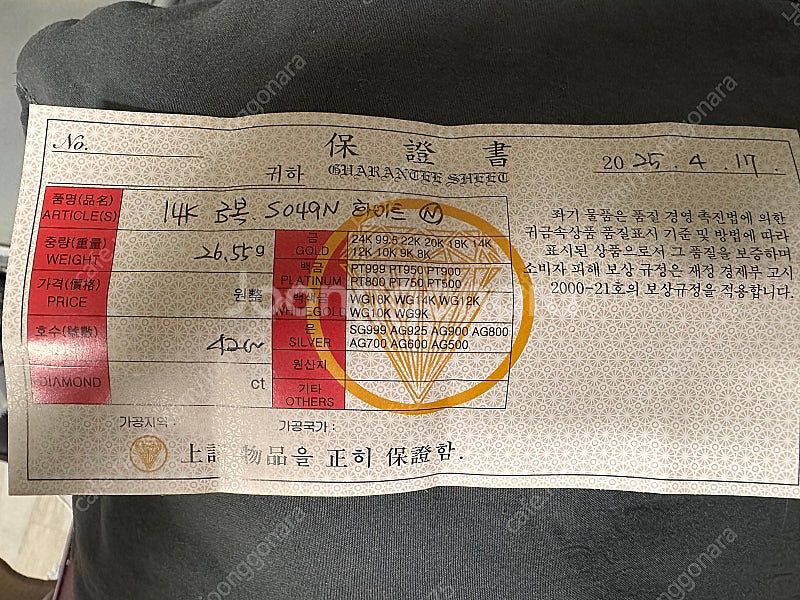 No.
保 證 書
귀하
GUARANTEE SHEET
2025. 4. 17.
품명(品名)
ARTICLE(S)
14K S049N 화이트 N
중량(重量)
WEIGHT
26.55g
가격(價格)
PRICE
원整
호수(號數)
42cm
DIAMOND
ct
금
GOLD
24K 99.5 22K 20K 18K 14K
12K 10K 9K 8K
백금
PLATINUM
PT999 PT950 PT900
PT800 PT750 PT500
백색금
WHITEGOLD
WG18K WG14K WG12K
WG10K WG9K
은
SILVER
SG999 AG925 AG900 AG800
AG700 AG600 AG500
원산지
기타
OTHERS
좌기 물품은 품질 경영 촉진법에 의한
귀금속상품 품질표시 기준 및 방법에 따라
표시된 상품으로서 그 품질을 보증하며
소비자 피해 보상 규정은 재정 경제부 고시
2000-21호의 보상규정을 적용합니다.
가공지역 :
가공국가 :
上記 物品을 正히 保證함.
Joonggonara
cafe.naver.com/joonggonara